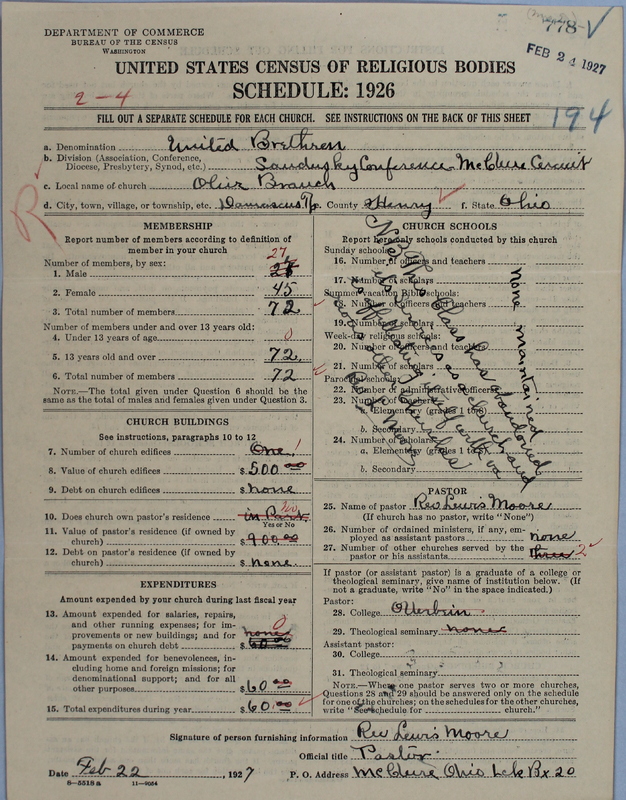 DEPARTMENT OF COMMERCE
BUREAU OF THE CENSUS
WASHINGTON
778-
FEB 24 1927
UNITED STATES CENSUS OF RELIGIOUS BODIES
SCHEDULE: 1926
2-4
194
FILL OUT A SEPARATE SCHEDULE FOR EACH CHURCH. SEE INSTRUCTIONS ON THE BACK OF THIS SHEET
a. Denomination United Brethren
b. Division (Association, Conference, Diocese, Presbytery, Synod, etc.) Sandusky Conference McClure Circuit
c. Local name of church Olive Branch
d. City, town, village, or township, etc. Damascus Tp. County Henry f. State Ohio
R
MEMBERSHIP
Report number of members according to definition of member in your church
Number of members, by sex:
27
1. Male
2. Female 45
3. Total number of members 72
Number of members under and over 13 years old:
4. Under 13 years of age 0
5. 13 years old and over 72
6. Total number of members 72
NOTE.—The total given under Question 6 should be the same as the total of males and females given under Question 3.
CHURCH BUILDINGS
See instructions, paragraphs 10 to 12
7. Number of church edifices One 1
8. Value of church edifices $500.00
9. Debt on church edifices $ none
10. Does church own pastor's residence in Part no
Yes or No
11. Value of pastor's residence (if owned by church) $900.00
12. Debt on pastor's residence (if owned by church) $ none
EXPENDITURES
Amount expended by your church during last fiscal year
13. Amount expended for salaries, repairs, and other running expenses; for improvements or new buildings; and for payments on church debt $ none 0
14. Amount expended for benevolences, including home and foreign missions; for denominational support; and for all other purposes $60.00
15. Total expenditures during year $60.00
CHURCH SCHOOLS
Report here only schools conducted by this church
Sunday schools:
16. Number of officers and teachers
17. Number of scholars
Summer vacation Bible schools:
18. Number of officers and teachers
19. Number of scholars
Week-day religious schools:
20. Number of officers and teachers
21. Number of scholars
Parochial schools:
22. Number of administrative officers
23. Number of teachers:
a. Elementary (grades 1 to 8)
b. Secondary
24. Number of scholars:
a. Elementary (grades 1 to 8)
b. Secondary
none maintained
N.B. This Class has abandoned
its services as a church and
Rev Moore
PASTOR
25. Name of pastor Rev Lewis Moore
(If church has no pastor, write "None")
26. Number of ordained ministers, if any, employed as assistant pastors none
27. Number of other churches served by the pastor or his assistants three 2
If pastor (or assistant pastor) is a graduate of a college or theological seminary, give name of institution below. (If not a graduate, write "No" in the space indicated.)
Pastor:
28. College Otterbein
29. Theological seminary none
Assistant pastor:
30. College
31. Theological seminary
NOTE.—Where one pastor serves two or more churches, Questions 28 and 29 should be answered only on the schedule for one of the churches; on the schedules for the other churches, write "See schedule for church."
Signature of person furnishing information Rev Lewis Moore
Official title Pastor
Date Feb 22, 1927 P. O. Address McClure Ohio Lck Bx 20
8—5518 a 11—9054